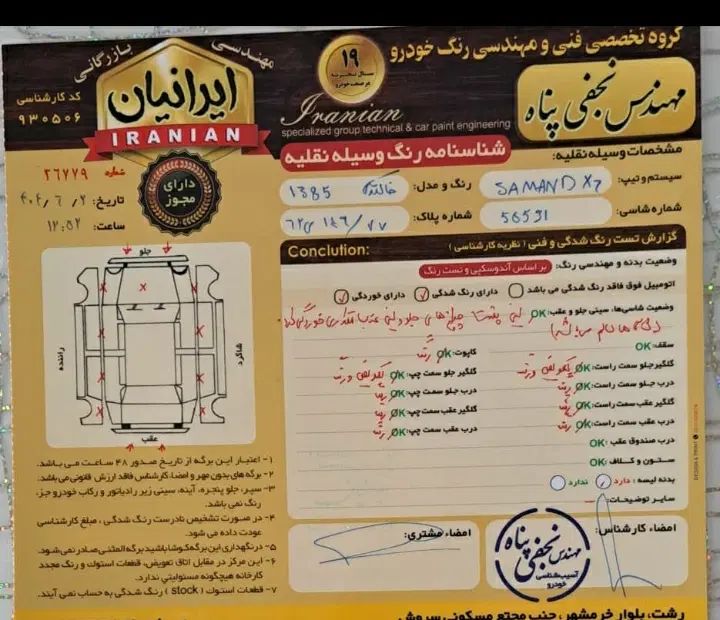 گروه تخصصی فنی و مهندسی رنگ خودرو
مهندسی
بازرگانی
ایرانیان
IRANIAN
کد کارشناسی
۹۳۰۵۰۶
۱۹
سال تجربه
در صنعت خودرو
مهندس نجفی پناه
Iranian
specialized group technical & car paint engineering
شناسنامه رنگ وسیله نقلیه
مشخصات وسیله نقلیه:
سیستم و تیپ: SAMAND X7
رنگ و مدل: ۱۳۸۵
شماره شاسی: 56591
شماره پلاک:
شماره ۲۶۷۷۹
تاریخ:
ساعت: ۱۲:۵۲
دارای مجوز
Conclution:
گزارش تست رنگ شدگی و فنی ( نظریه کارشناسی )
وضعیت بدنه و مهندسی رنگ: بر اساس آندوسکپی و تست رنگ
اتومبیل فوق فاقد رنگ شدگی می باشد
دارای رنگ شدگی ✓
دارای خوردگی ✓
وضعیت شاسی‌ها، سینی جلو و عقب: OK
سقف: OK
کاپوت: OK رنگ
گلگیر جلو سمت راست: OK
گلگیر جلو سمت چپ: OK
درب جلو سمت راست: OK رنگ
درب جلو سمت چپ: OK رنگ
گلگیر عقب سمت راست: OK رنگ
گلگیر عقب سمت چپ: OK رنگ
درب عقب سمت راست: OK رنگ
درب عقب سمت چپ: OK رنگ
درب صندوق عقب: OK
ستون و کلاف: OK
بدنه لیسه: دارد ندارد
سایر توضیحات:
جلو
راننده
شاگرد
عقب
۱- اعتبار این برگه از تاریخ صدور ۴۸ ساعت می باشد.
۲- برگه های بدون مهر و امضا کارشناس فاقد ارزش قانونی می باشد.
۳- سپر، جلو پنجره، آینه، سینی زیر رادیاتور و رکاب خودرو جزء رنگ نمی باشد.
۴- در صورت تشخیص نادرست رنگ شدگی ، مبلغ کارشناسی عودت داده می شود.
۵- در نگهداری این برگه کوشا باشید برگه المثنی صادر نمی شود.
۶- این مرکز در مقابل اتاق تعویض، قطعات استوک و رنگ مجدد کارخانه هیچگونه مسئولیتی ندارد.
۷- قطعات استوک ( stock ) رنگ شدگی به حساب نمی آیند.
امضاء مشتری:
امضاء کارشناس:
مهندس نجفی پناه
آسیب شناسی خودرو
رشت، بلوار خرمشهر، جنب مجتمع مسکونی سروش